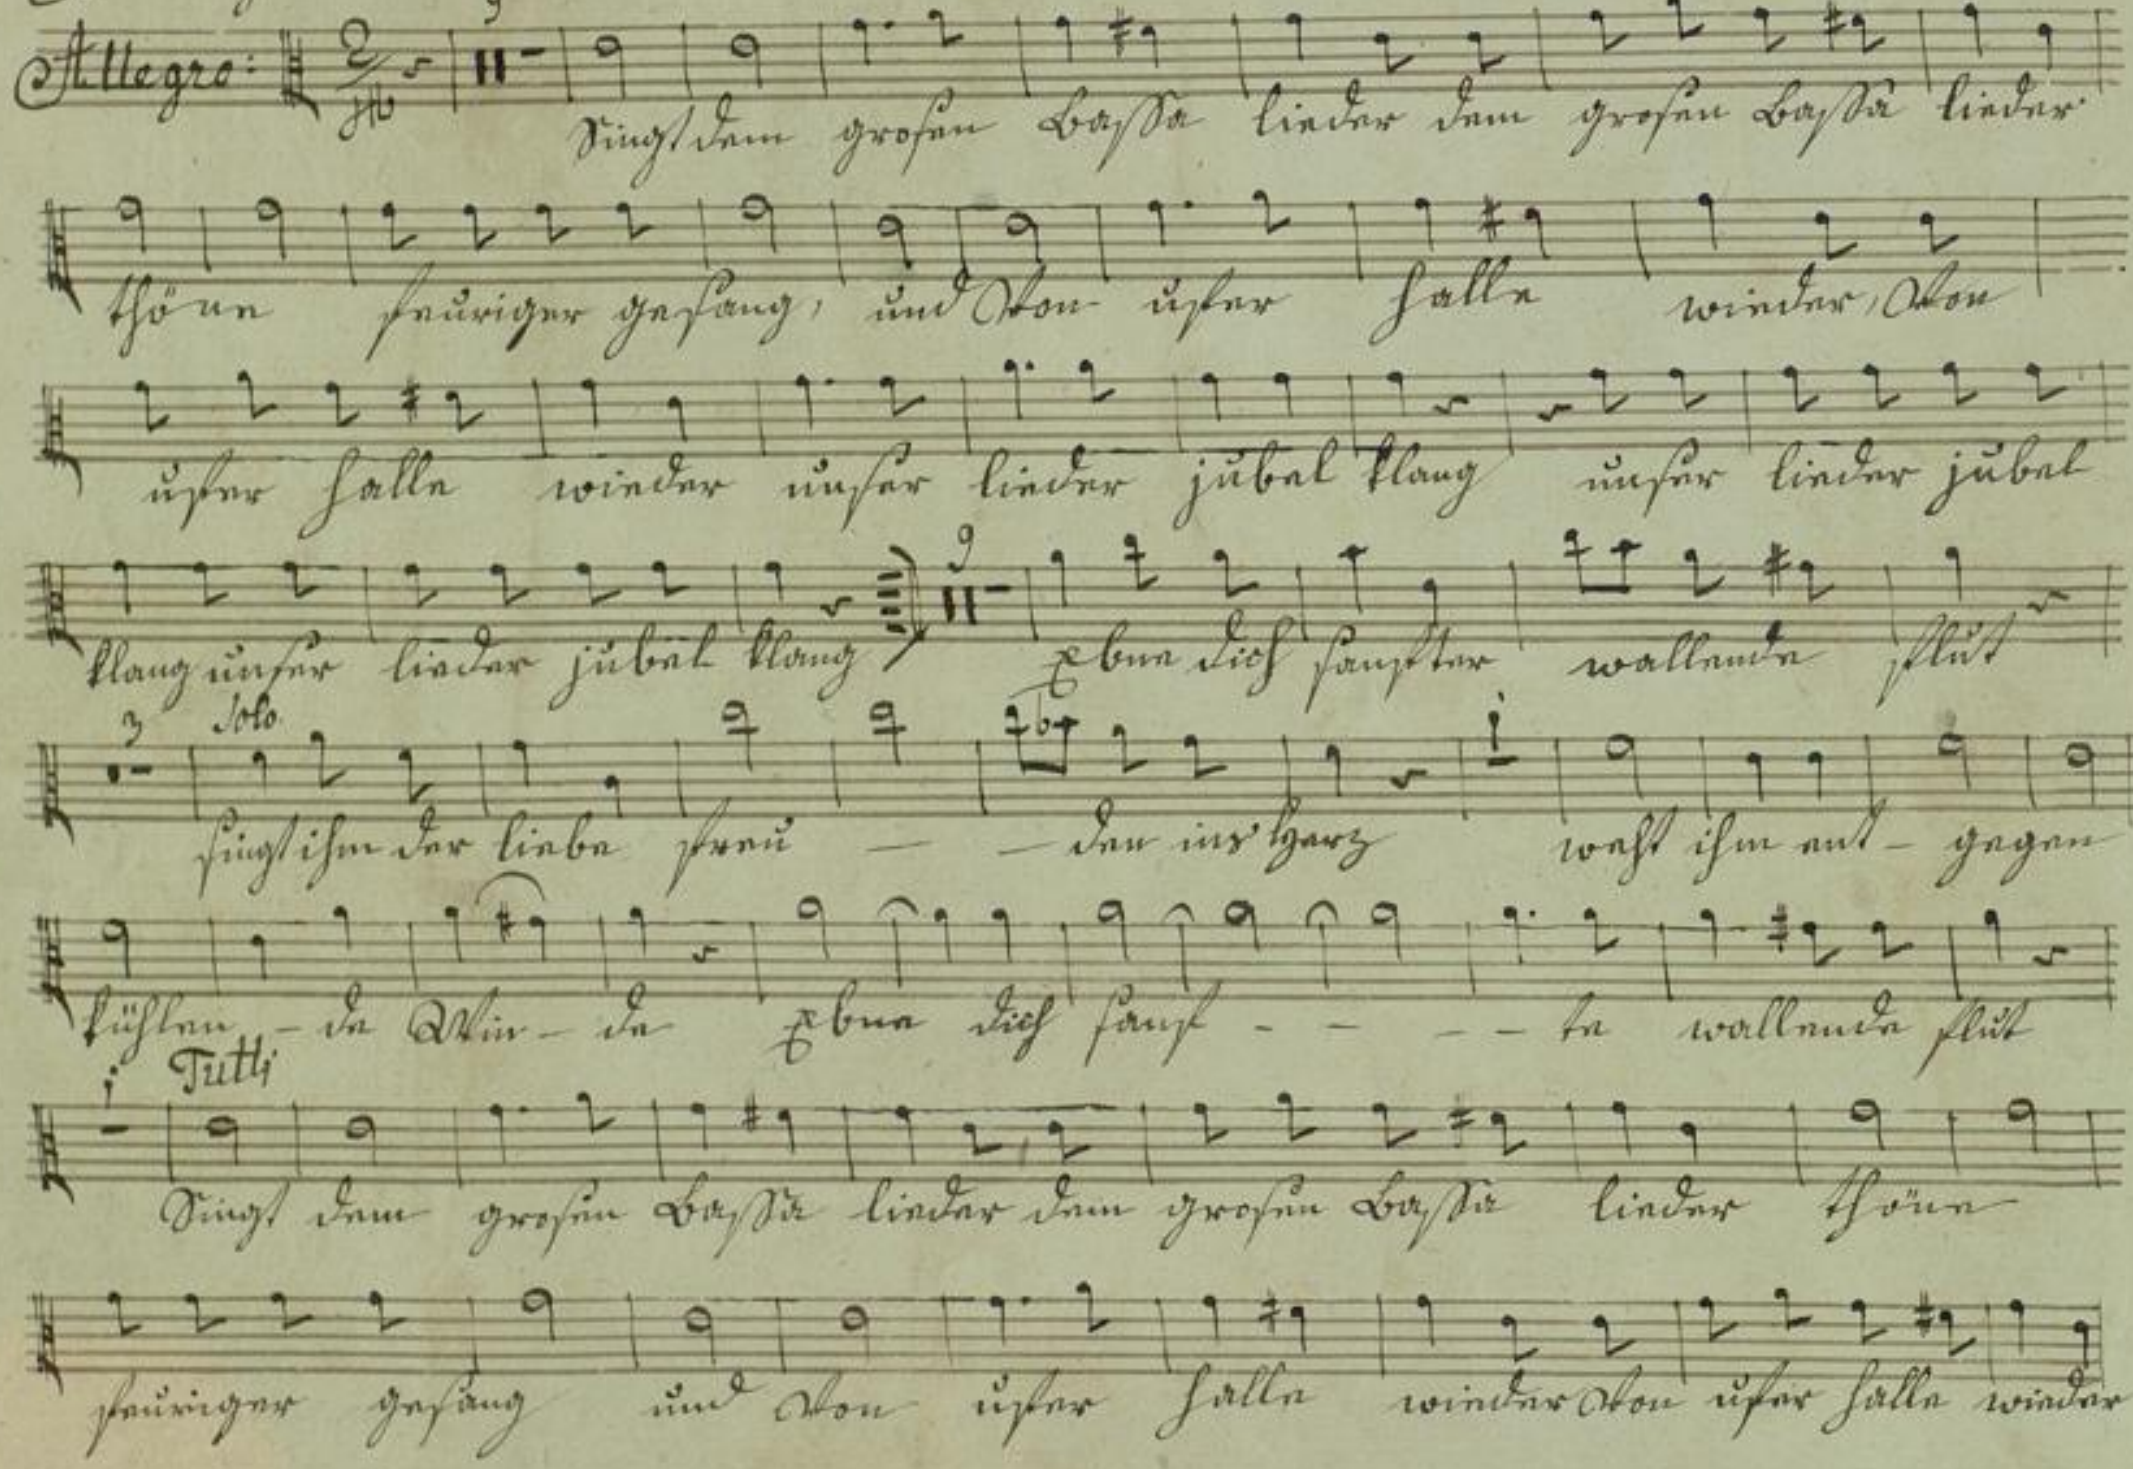 Allegro: 2/4 9
Singt dem grosen Bassa lieder dem grosen Bassa lieder
thöne feuriger gesang, und Von ufter halle wieder, Von
ufter halle wieder unser lieder jubel klang unser lieder jubel
9
klang unser lieder jubel klang Ebne dich sanfter wallende flut
3 Solo
singt ihm der liebe freu — — den ins Herz weht ihm ent - gegen
kühlen - de Win - de Ebne dich sanf - - - - te wallende flut
Tutti
Singt dem grosen Bassa lieder dem grosen Bassa lieder thöne
feuriger gesang und Von ufter halle wieder Von ufer halle wieder